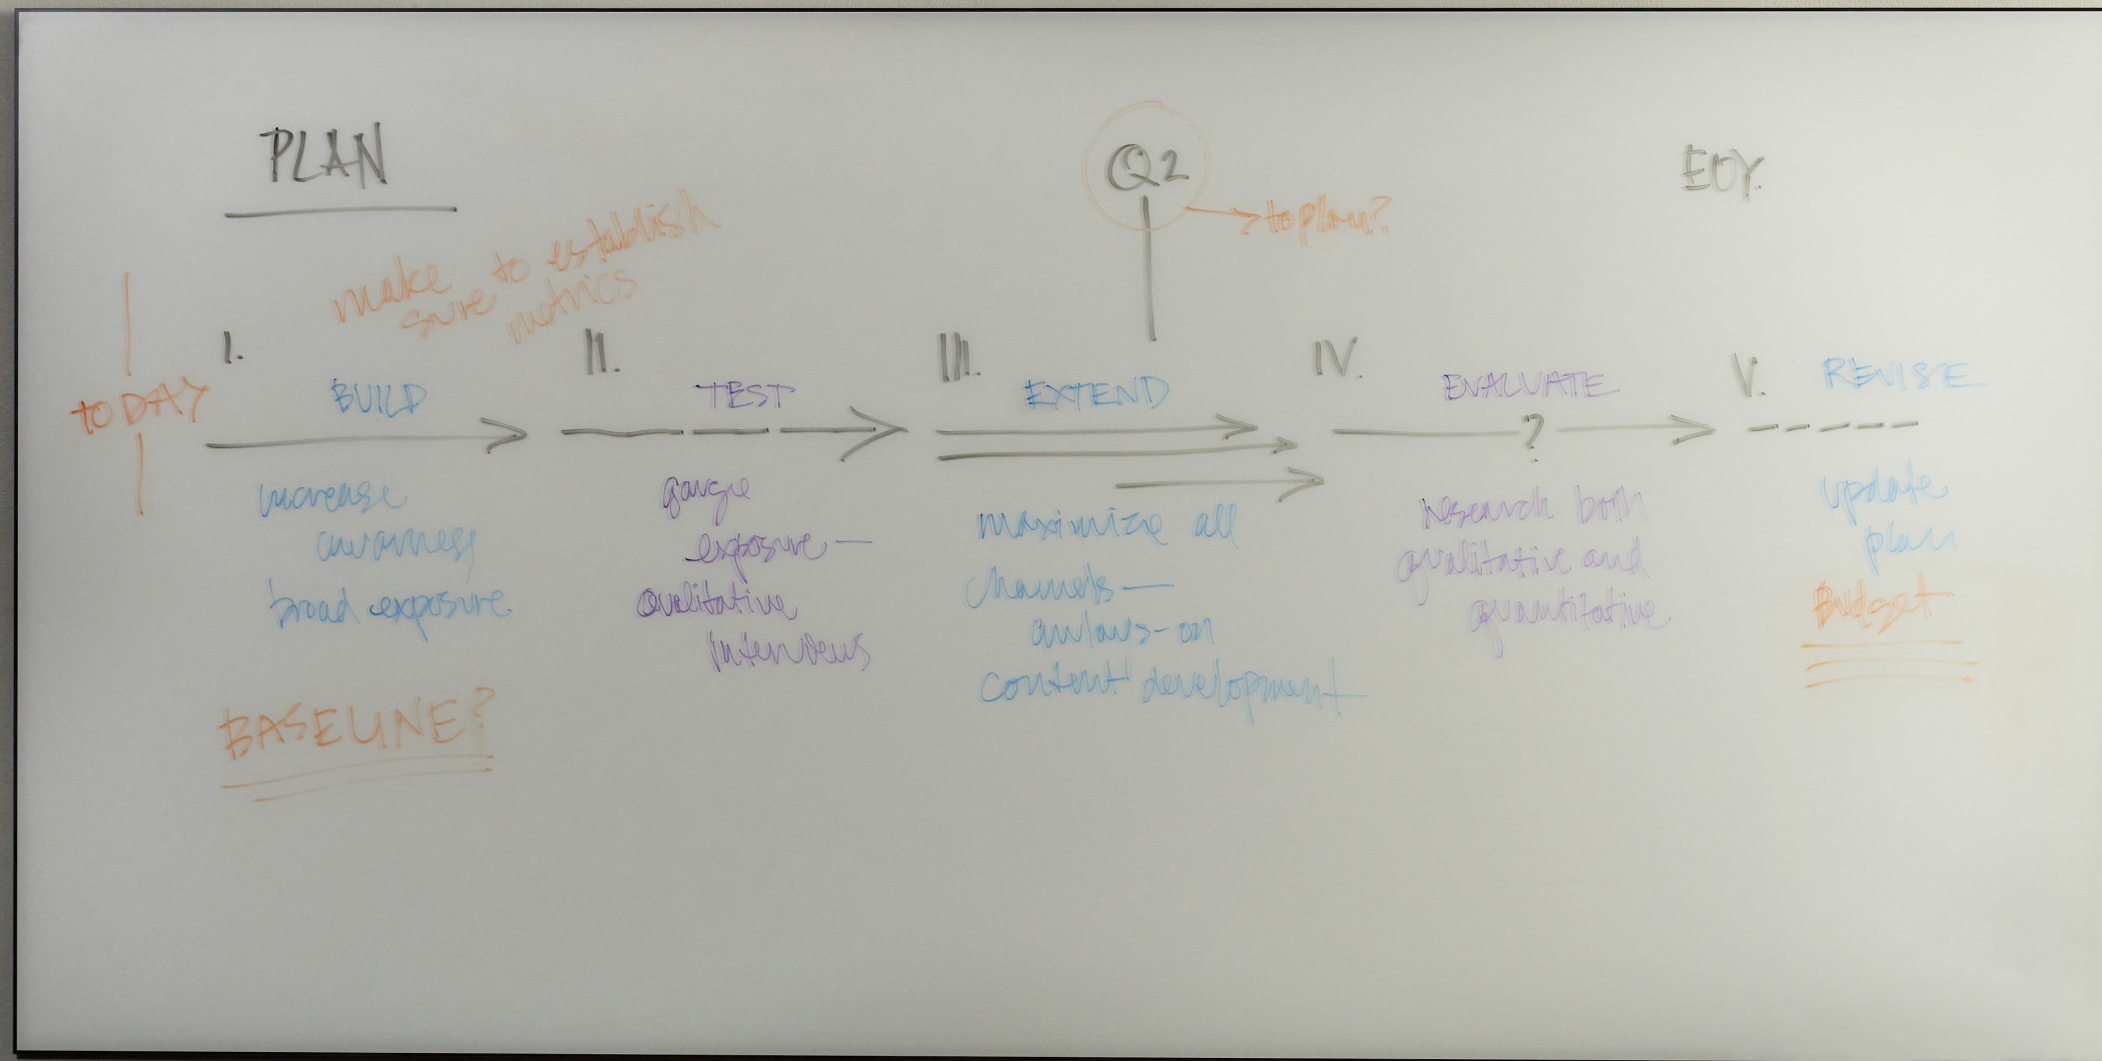 PLAN
Q2
EOY.
to plan?
make
sure to establish
metrics
toDAY
I.
BUILD
increase
awareness
broad exposure
BASELINE?
II.
TEST
gauge
exposure —
qualitative
interviews
III.
EXTEND
maximize all
channels —
always-on
content development
IV.
EVALUATE
?
research both
qualitative and
quantitative
V.
REVISE
update
plan
Budget